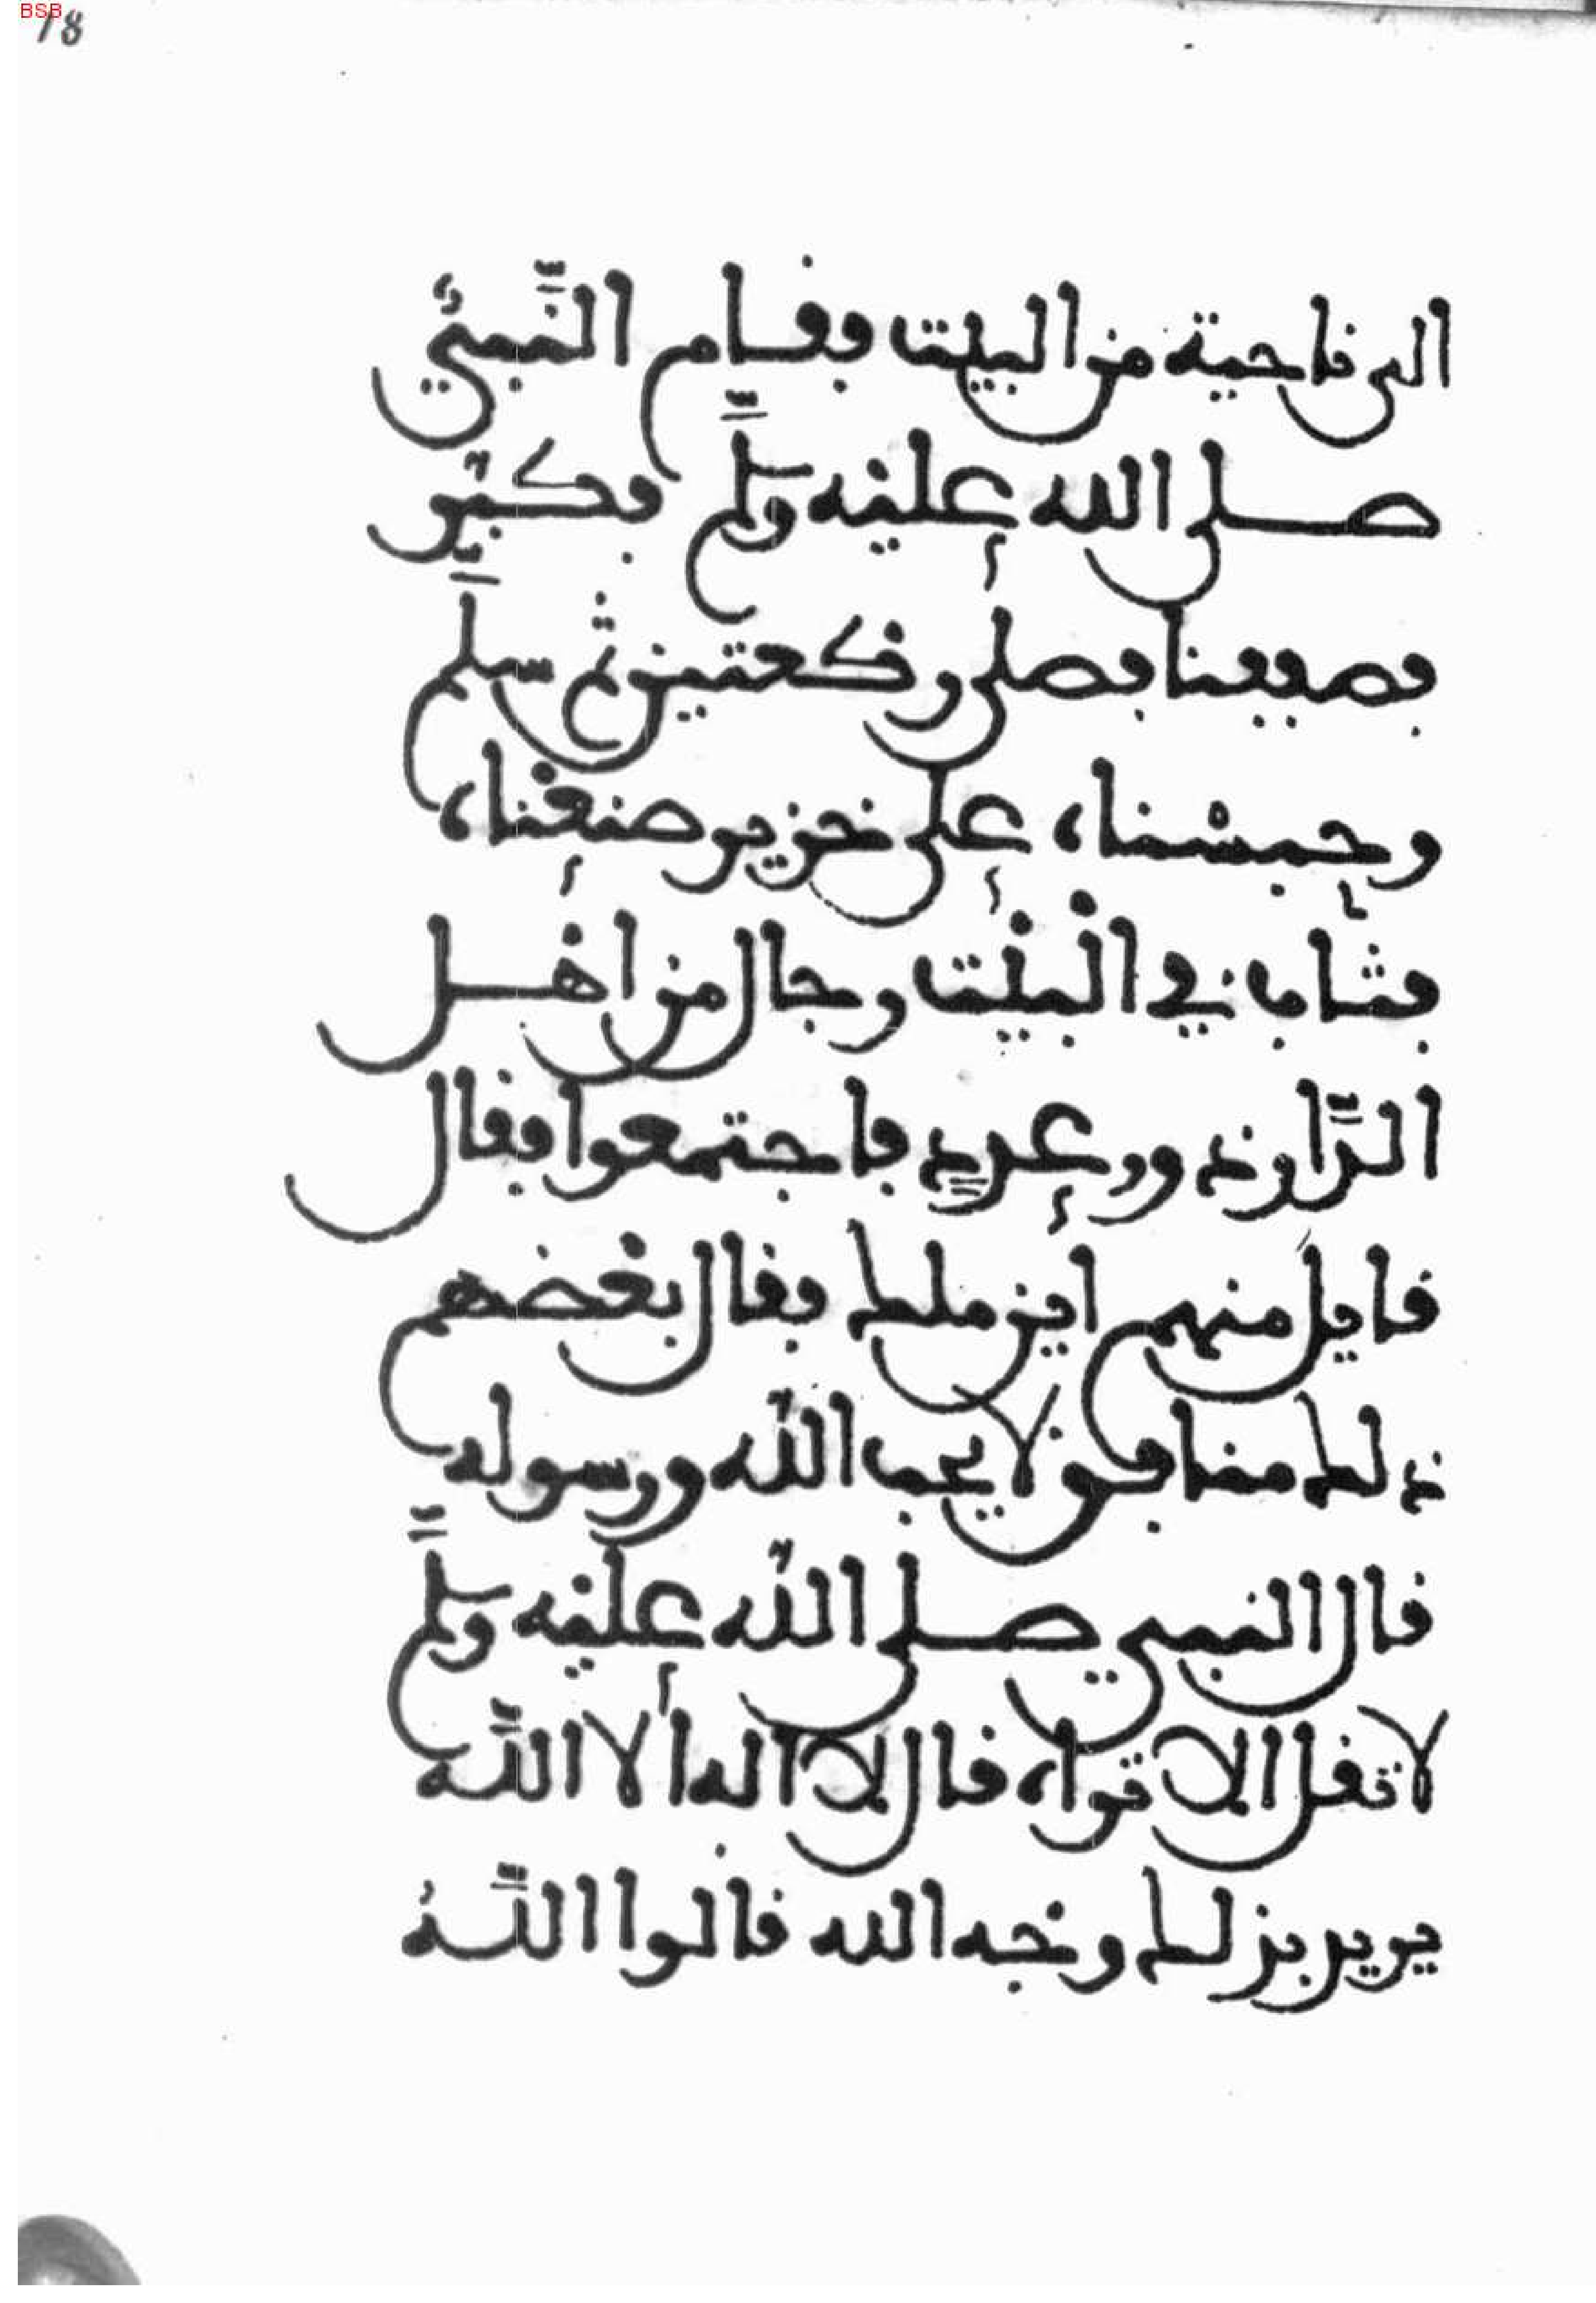 BSB
18
الى ناحية من البيت فقام النَّبيُّ
صلى الله عليْه وسلَّم فكبّر
فصففنا فصلى ركعتين ثم سلَّم
وحبسْناه على خزير صنعْناه
فثاب في الْبيْت رجال من اهْل
الدَّار ذو وعددٍ فاجتمعوا فقال
قايل منهم اين ملك فقال بعْضهم
ذلك منافق لا يحب اللّه ورسوله
قال النبي صلى اللّه عليْه وسلَّم
لا تقل الا تراه قال لا اله الا اللَّه
يريد بذلك وجْه الله قالوا اللَّهُ